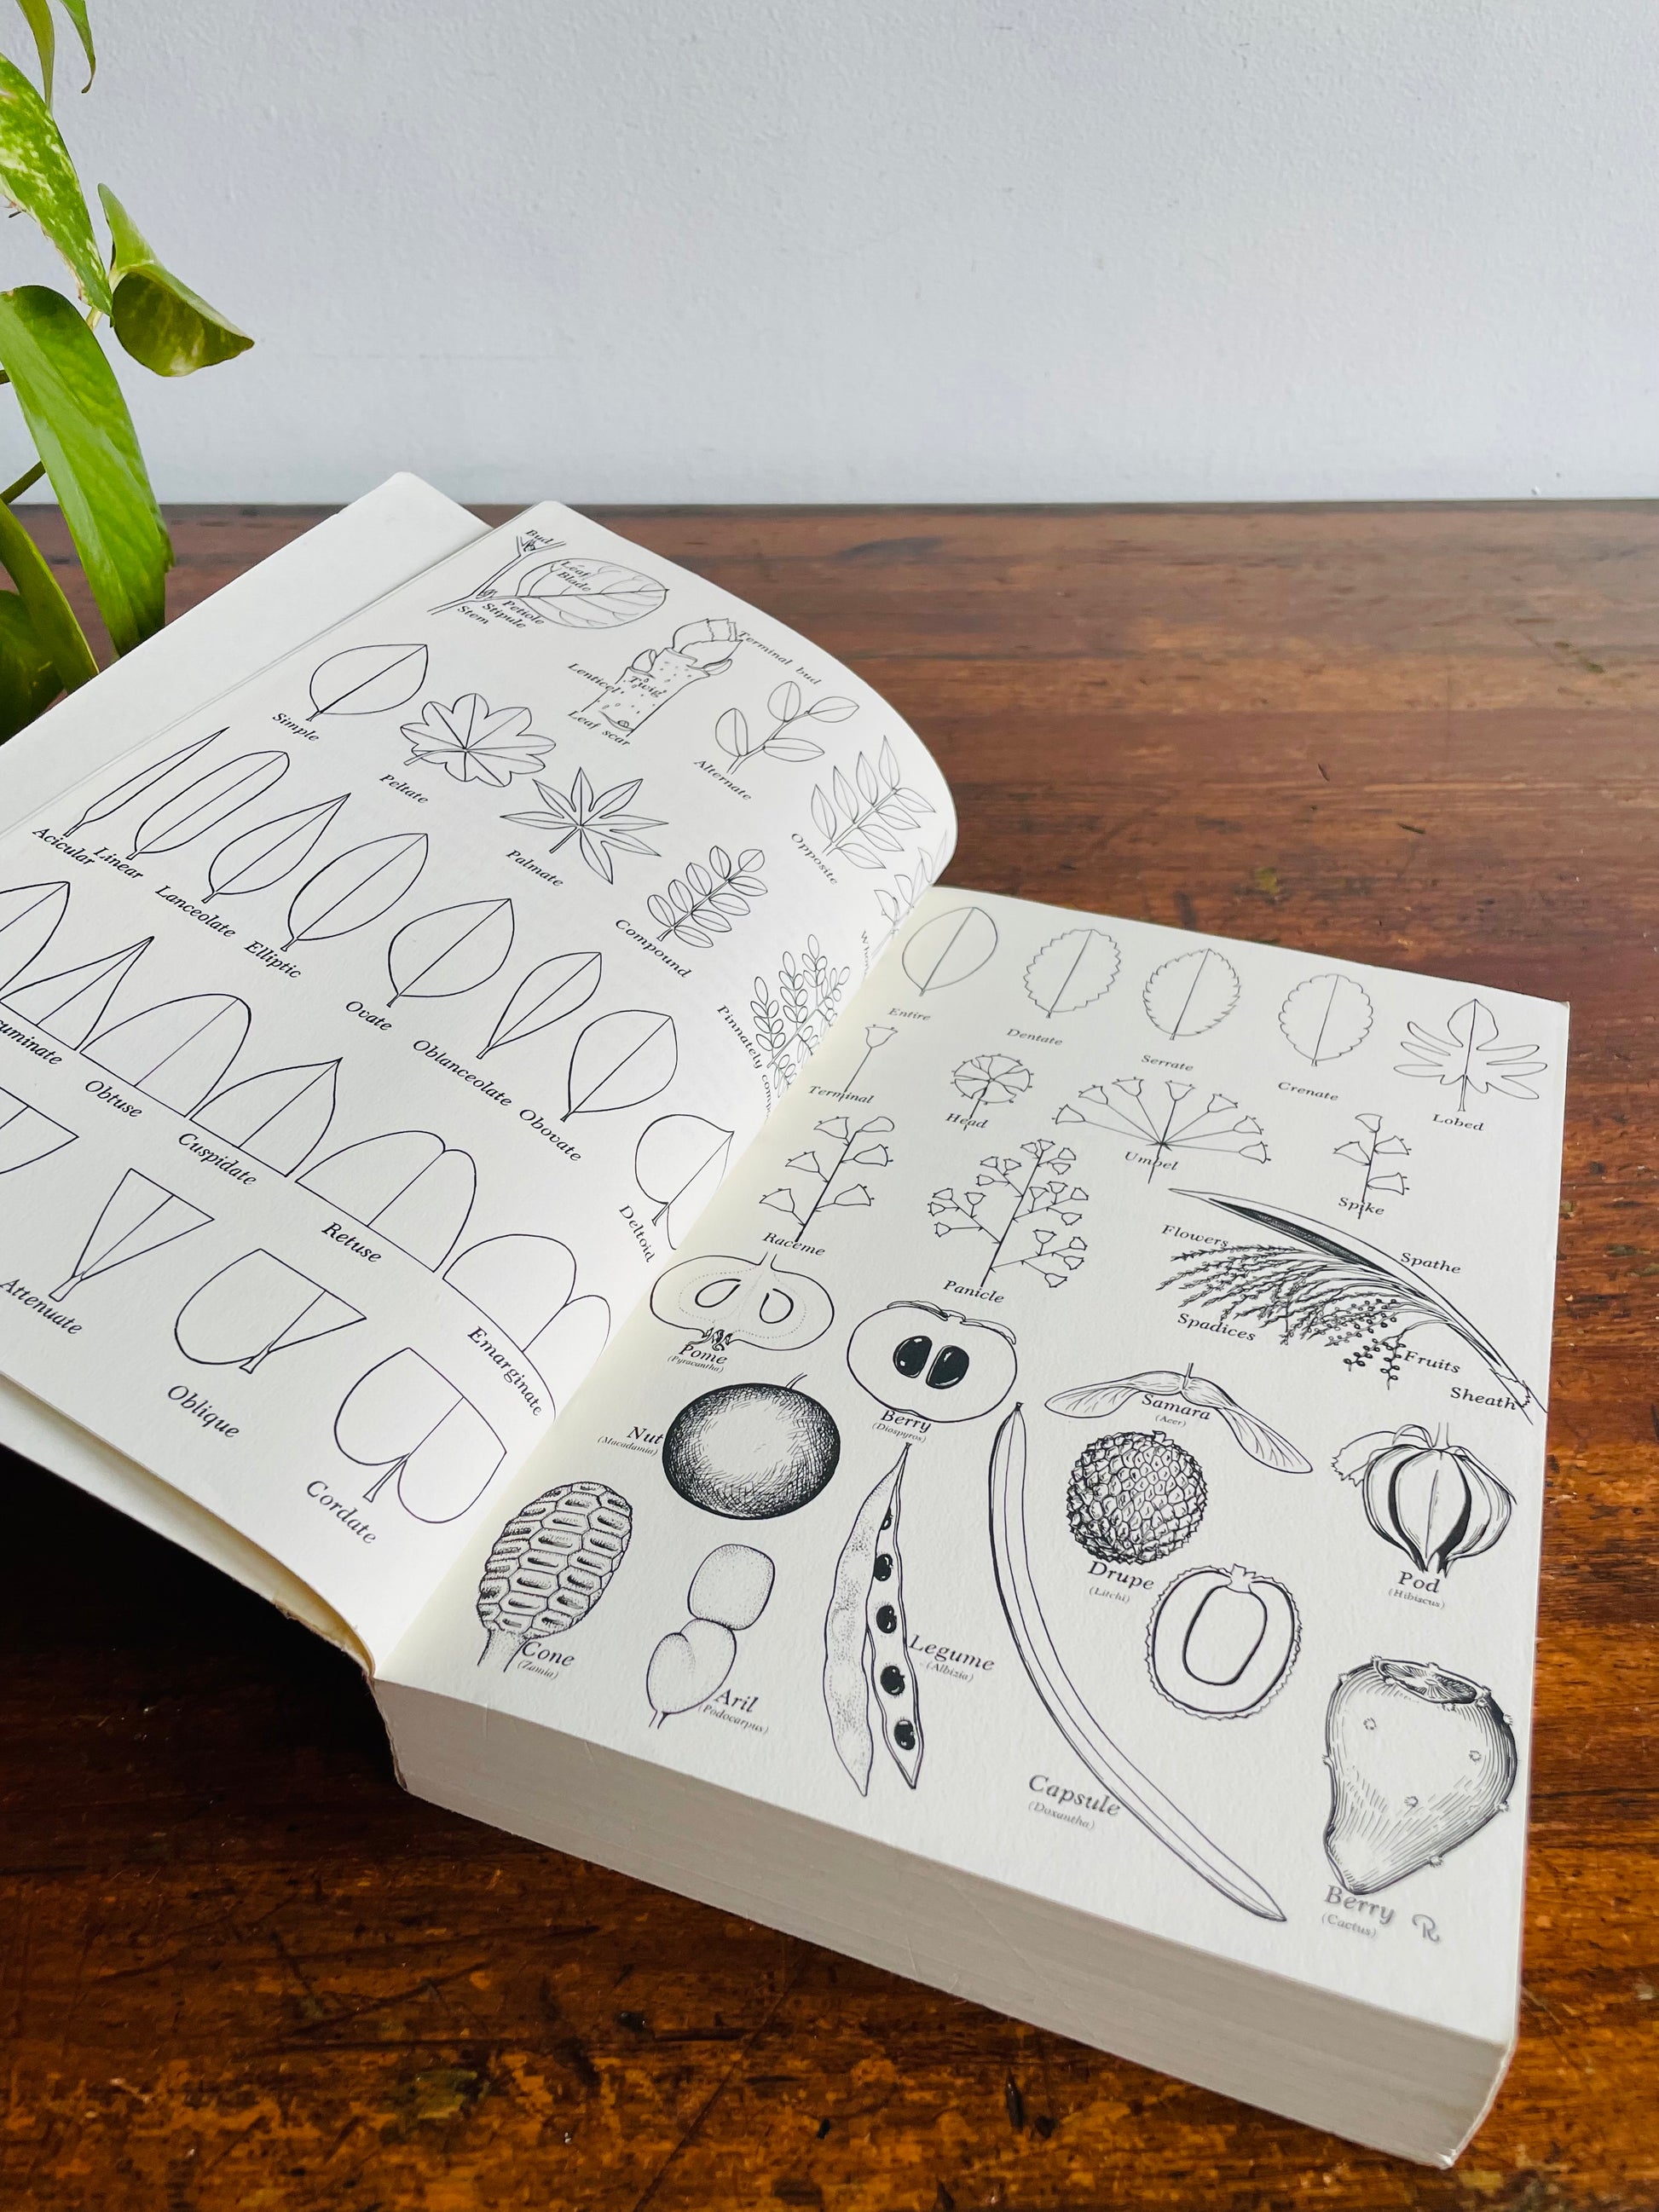 Bud
Leaf
Blade
Petiole
Stipule
Stem
Terminal bud
Lenticel
Twig
Leaf scar
Simple
Peltate
Palmate
Alternate
Opposite
Compound
Acicular
Linear
Lanceolate
Elliptic
Ovate
Oblanceolate
Obovate
Deltoid
Pinnately
Obtuse
Cuspidate
Retuse
Emarginate
Attenuate
Oblique
Cordate
Entire
Dentate
Serrate
Crenate
Lobed
Terminal
Head
Umbel
Spike
Raceme
Panicle
Flowers
Spathe
Spadices
Fruits
Sheath
Pome
(Pyracantha)
Berry
(Diospyros)
Samara
(Acer)
Nut
(Macadamia)
Drupe
(Litchi)
Pod
(Hibiscus)
Cone
(Zamia)
Aril
(Podocarpus)
Legume
(Albizia)
Capsule
(Doxantha)
Berry
(Cactus)
R